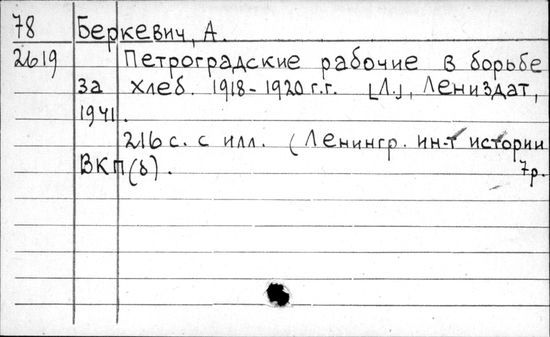 78 Беркевич, А.
2619 Петроградские рабочие в борьбе
за хлеб. 1918-1920 г.г. [Л.], Лениздат,
1941.
216 с. с илл. (Ленингр. ин-т истории
ВКП(б). 7р.